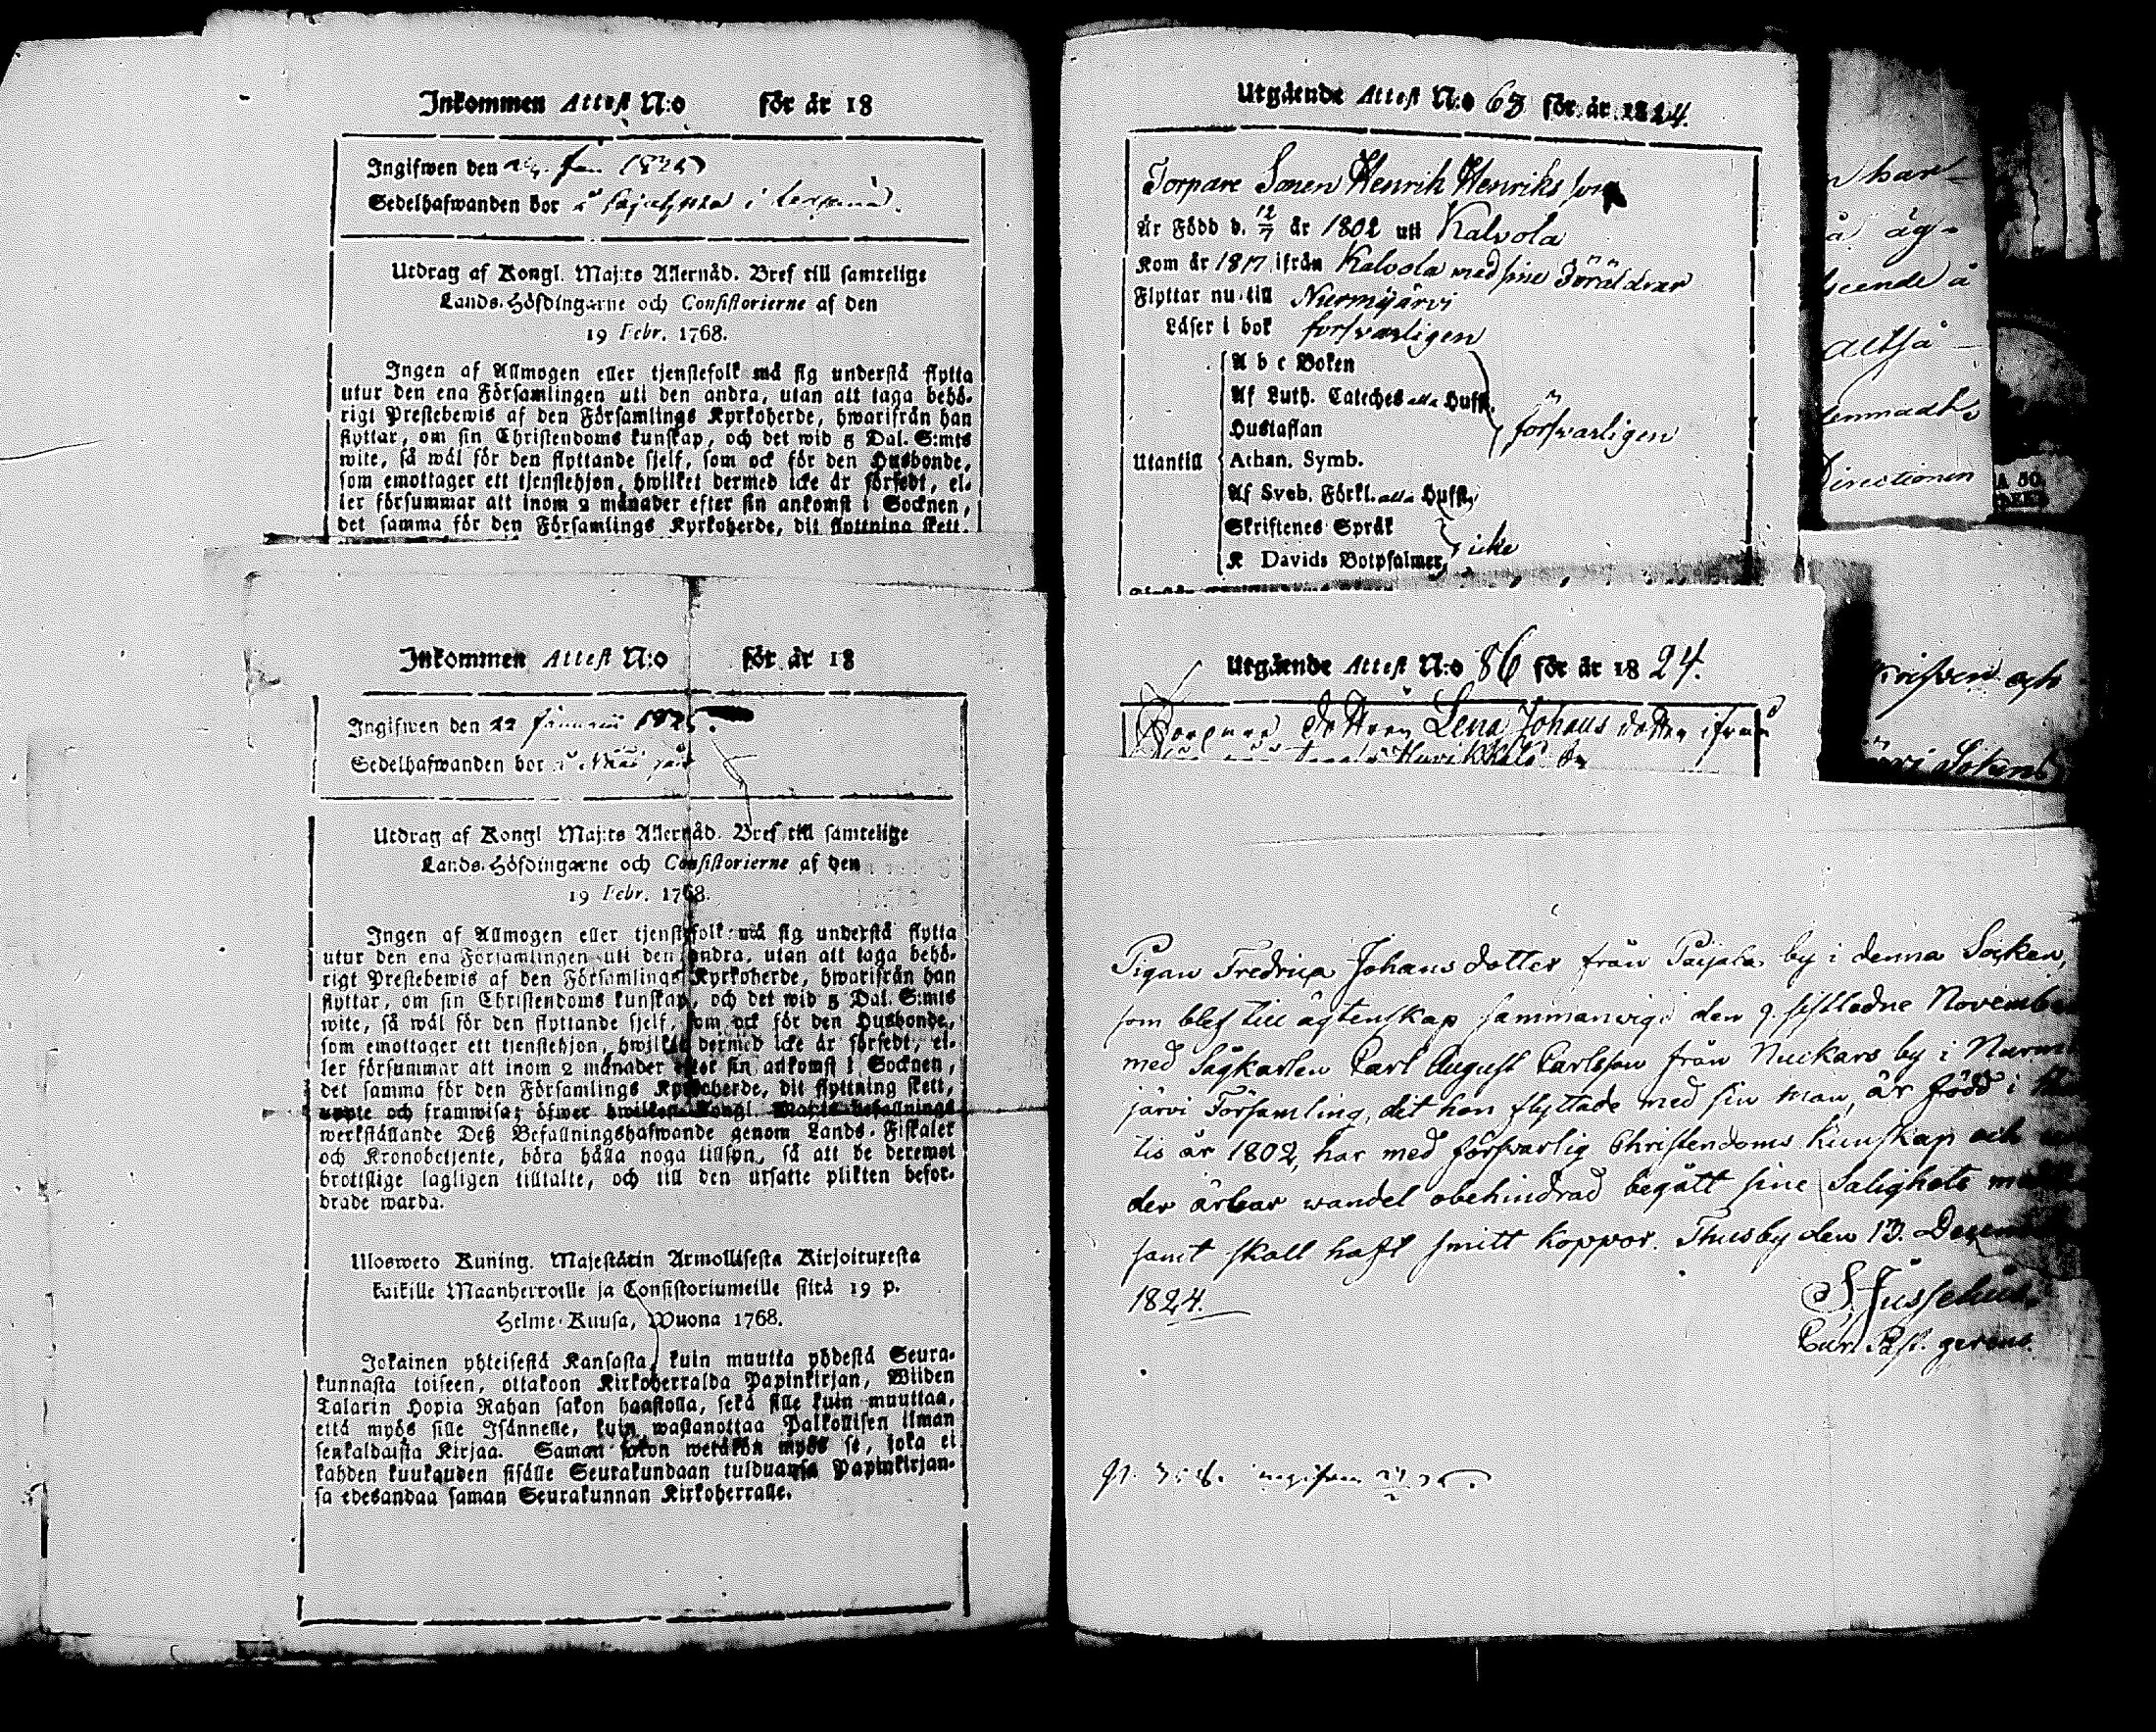 Inkommen Attest N:o för år 18
Ingifwen den 24. Jan 1825
Sedelhafwanden bor å i
Utdrag af Kongl. Maj:ts Allernåd. Bref till samtelige
Lands-Höfdingarne och Consistorierne af den
19 Febr. 1768.
Ingen af Allmogen eller tjenstefolk må sig understå flytta
utur den ena Församlingen uti den andra, utan att taga behö-
rigt Prestebewis af den Församlings Kyrkoherde, hwarifrån han
flyttar, om sin Christendoms kunskap, och det wid 5 Dal. S:mts
wite, så wäl för den flyttande sjelf, som ock för den Husbonde,
som emottager ett tjenstehjon, hwilket dermed icke är försedt, el-
ler försummar att inom 2 månader efter sin ankomst i Socknen,
det samma för den Församlings Kyrkoherde, dit flyttning skett.
Inkommen Attest N:o för år 18
Ingifwen den 22 Januari 1825.
Sedelhafwanden bor å
Utdrag af Kongl Maj:ts Allernåd. Bref till samtelige
Lands-Höfdingarne och Consistorierne af den
19 Febr. 1768.
Ingen af Allmogen eller tjenstefolk må sig understå flytta
utur den ena Församlingen uti den andra, utan att taga behö-
rigt Prestebewis af den Församlings Kyrkoherde, hwarifrån han
flyttar, om sin Christendoms kunskap, och det wid 5 Dal. S:mts
wite, så wäl för den flyttande sjelf, som ock för den Husbonde,
som emottager ett tjenstehjon, hwilket dermed icke är försedt, el-
ler försummar att inom 2 månader efter sin ankomst i Socknen,
det samma för den Församlings Kyrkoherde, dit flyttning skett,
uppte och framwisa; öfwer hwilket Kongl. Maj:ts befallnings
werkställande Deß Befallningshafwande genom Lands-Fiskaler
och Kronobetjente, böra hålla noga tillsyn, så att de deremot
brottslige lagligen tilltalte, och till den utsatte plikten befor-
drade warda.
Ulosweto Kuning. Majestätin Armollisesta Kirjoituxesta
kaikille Maanherroille ja Consistoriumeille siitä 19 p.
Helme-Kuusa, Wuona 1768.
Jokainen yhteisestä Kansasta, kuin muutta yhdestä Seura-
kunnasta toiseen, ottakoon Kirkoherralda Papinkirjan, Wiiden
Talarin Hopia Rahan sakon haastolla, sekä sille kuin muuttaa,
että myös sille Isännelle, kuin wastanottaa Palkollisen ilman
senkaldaista Kirjaa. Saman sakon wetäkön myös se, joka ei
kahden kuukauden sisälle Seurakundaan tulduansa Papinkirjan-
sa edesandaa saman Seurakunnan Kirkoherralle.
Utgående Attest N:o 63 för år 1824.
Torpare Sonen Henrik Henriksson
Är Född d. 12/7 år 1802 uti Kalvola
Kom år 1817 ifrån Kalvola med sine Föräldrar
Flyttar nu till Nurmijärvi
Läser i bok förswarligen
Abc Boken
Af Luth. Cateches alla Huffst.
Hustaflan
förswarligen
Utantill
Athan. Symb.
Af Sveb. Förkl. alla Huffst.
Skriftenes Språk
icke
K Davids Botpsalmer
Utgående Attest N:o 86 för år 1824.
dottren Lena Johans dotter ifrån
Pigan Fredrica Johansdotter från Paijala by i denna Socken,
som blef till ägtenskap sammanwigd den 9. sistledne November
med Sågkarlen Carl August Carlsson från Nuckars by i Nurmi
järvi Församling, dit hon flyttade med sin man, är född i
tis år 1802, har med förswarlig Christendoms kunskap och
der ärbar wandel obehindrad begått sine Salighets
samt skall haft smitt koppor. Thusby den 13. Decem
1824.
S. Jusselius.
Cur. Past. gerens.
n har-
å äg-
seende å
altså
Directionen
A 50.
och
Sokens